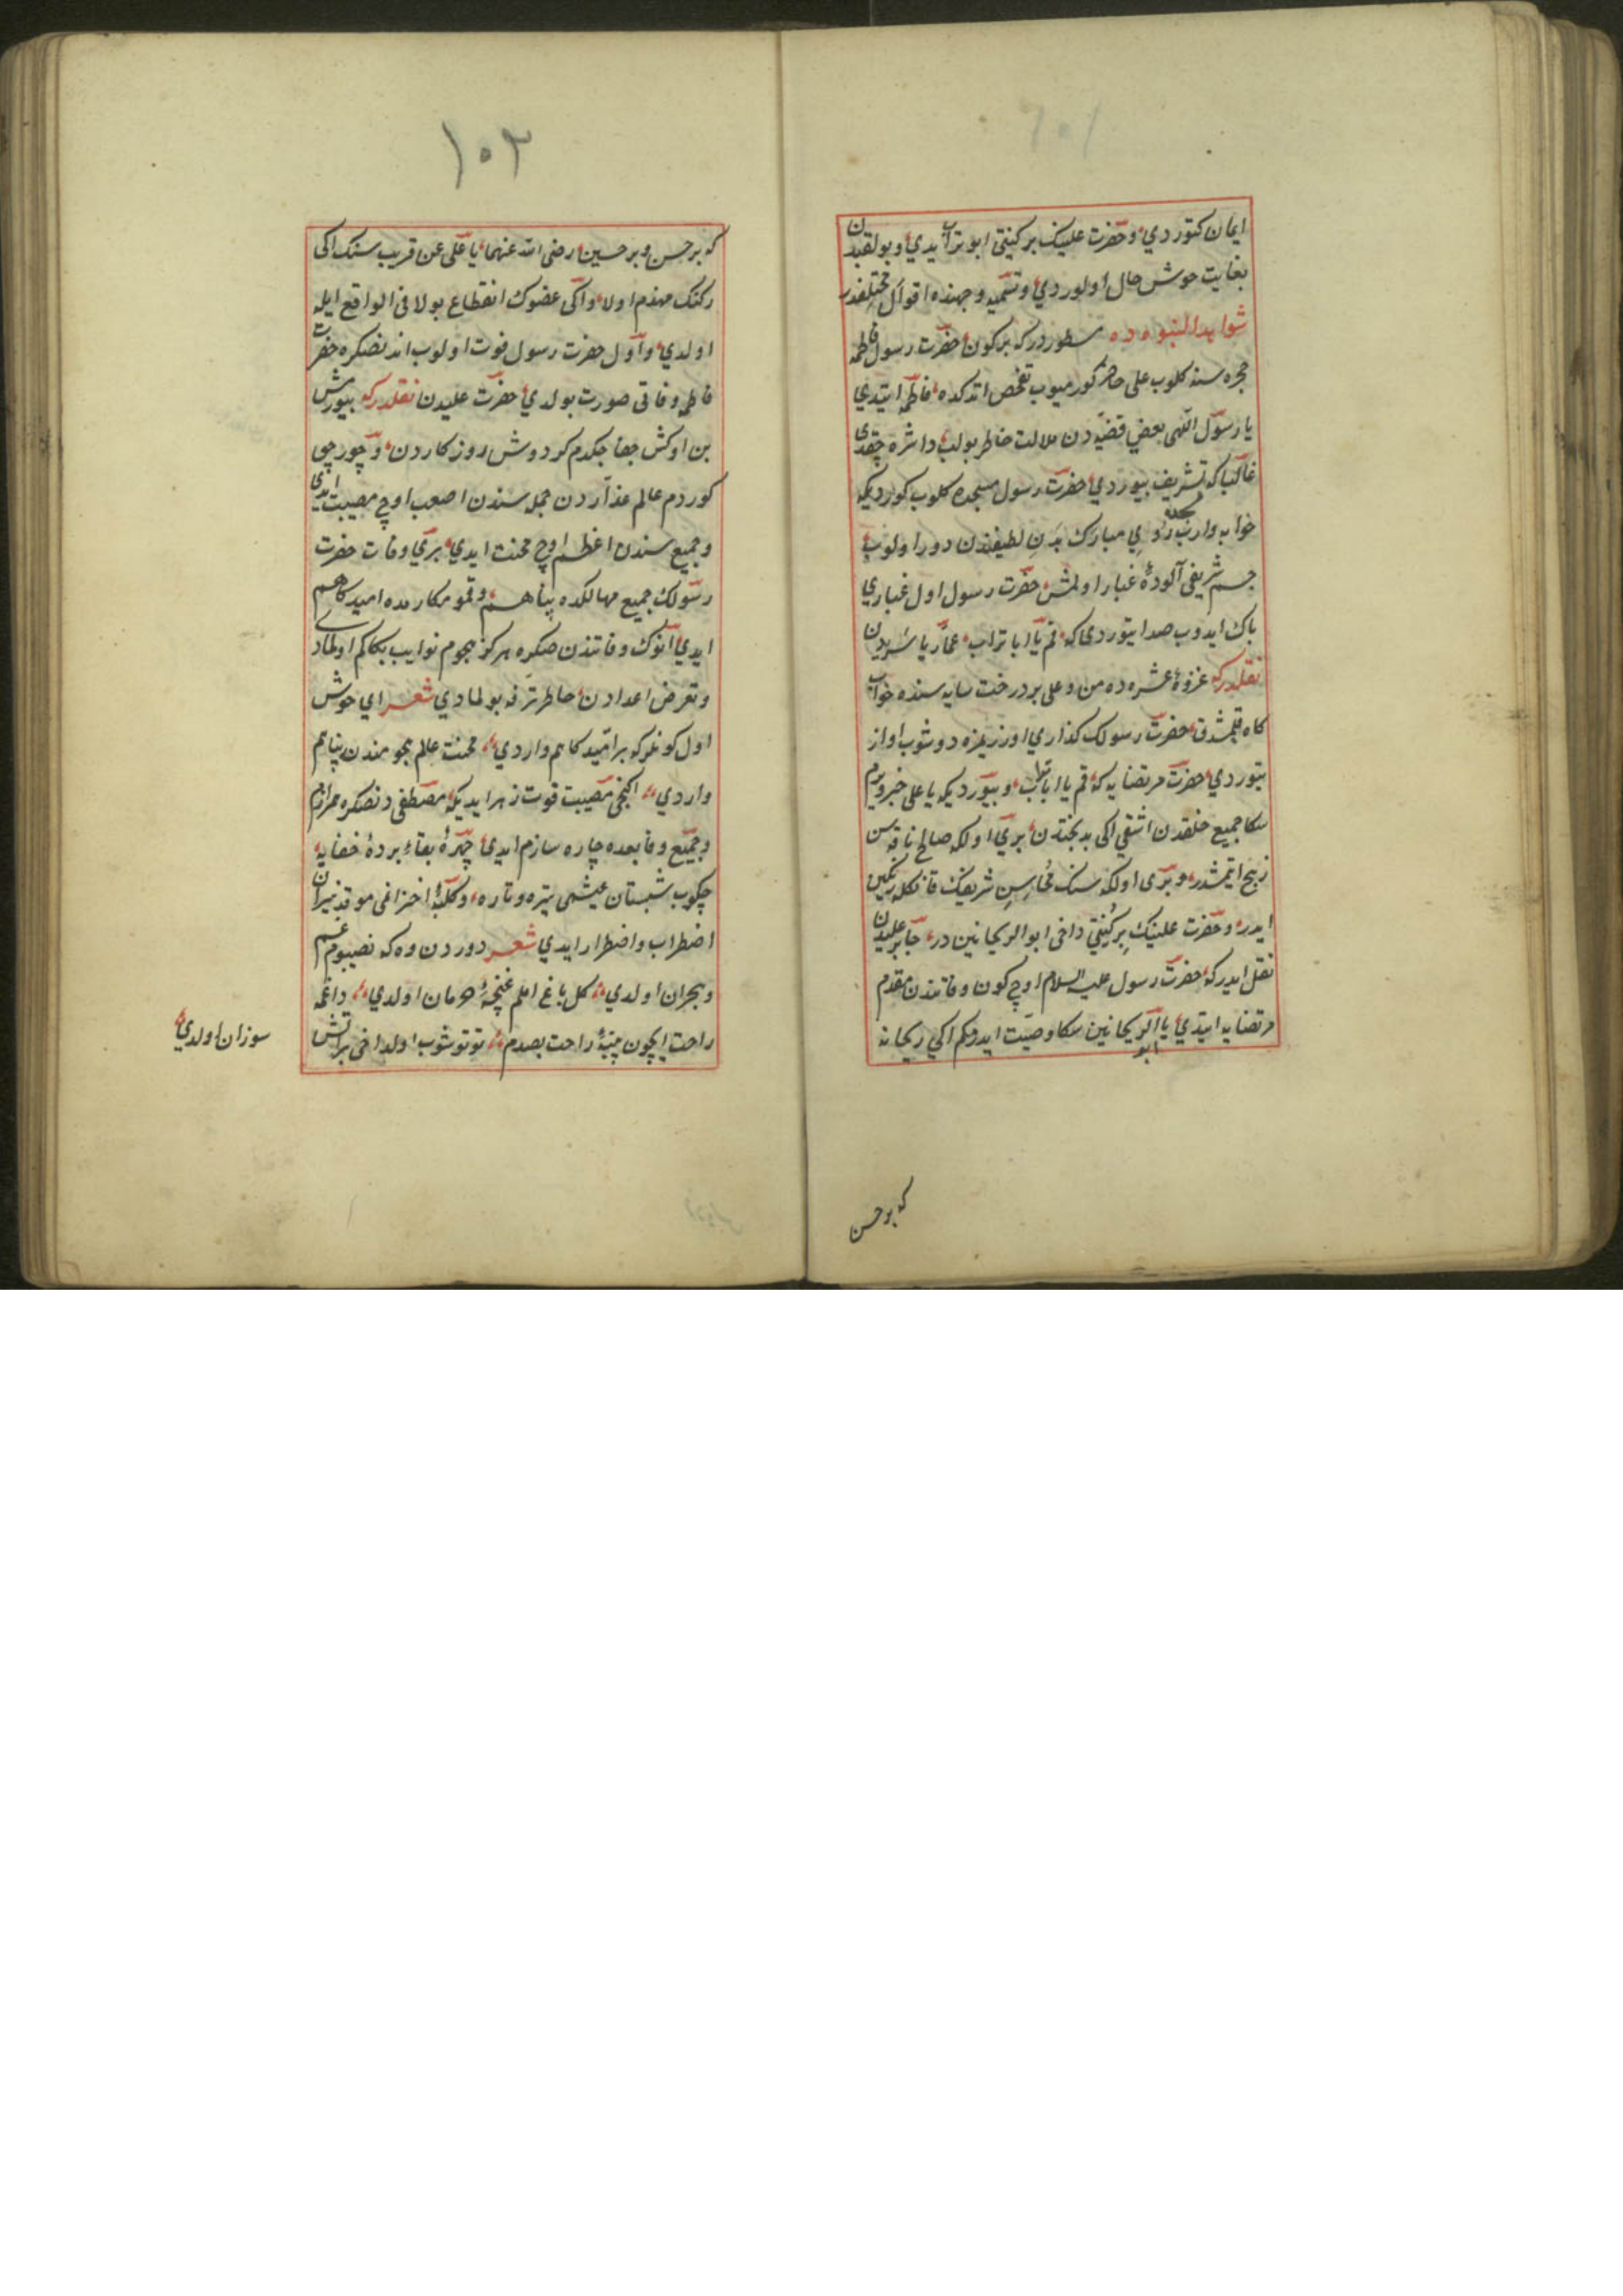 ایمان کتوردی وحضرت علینک بر کنیتی ابو تراب ایدی وبو لقبدن
بغایت خوش حال اولوردی وتسمیه وجهنده اقوال مختلفدر
شواهد النبوه ده مسطوردرکه بر کون حضرت رسول فاطمه
حجره سنه کلوب علی حاضر کورمیوب تفحص اتدکده فاطمه ایتدی
یا رسول اللهی بعض قضیه دن ملالت خاطر بولب داشره چقدی
غالبا که تشریف بیوردی حضرت رسول مسجده کلوب کوردیکه
خوابه واروب ردای مبارک بدن لطیفندن دور اولوب
جسم شریفی آلودهٔ غبار اولمش حضرت رسول اول غباری
پاک ایدوب صدا یتوردی که قم یا ابا تراب عمار یاسردن
نقلدرکه غزوهٔ عشیره ده من وعلی بر درخت سایه سنده خواب
کاه قلمشدق حضرت رسولک کذاری اوزریمزه دوشوب اواز
یتوردی حضرت مرتضایه که قم یا ابا تراب وبیوردیکه یا علی خبر ویرم
سکا جمیع خلقدن اشقی اکی بدبختدن بری اولکه صالح ناقه سن
ذبح ایتمشدر وبری اولکه سنک محاسن شریفک قانکله رنکین
ایدر وحضرت علینک بر کنیتی داخی ابو الریحانین در جابر علیدن
نقل ایدرکه حضرت رسول علیه السلام اوچ کون وفاتندن مقدم
مرتضایه ایتدی یا ابو الریحانین سکا وصیت ایدرمکم اکی ریحانه
که بر حسن
١٠٢
که بر حسن وبر حسین رضی الله عنهما یا علی عن قریب سنک اکی
رکنک منهدم اولا واکی عضوک انقطاع بولا فی الواقع ایله
اولدی واول حضرت رسول فوت اولوب اندنصکره حضرت
فاطمه وفاتی صورت بولدی حضرت علیدن نقلدرکه بیورمش
بن اوکش جفا چکدم کردش روزکاردن وچور چوب
کوردم عالم غداردن جمله سندن اصعب اوچ مصیبت ایدی
وجمیع سندن اعظم اوچ محنت ایدی بری وفات حضرت
رسولک جمیع مهالکده پناهم وقمو مکارمده امیدکاهم
ایدی انوک وفاتندن صکره هرکز هجوم نوایب بکا کم اولمادی
وتعرض اعدادن خاطر ترفه بولمادی شعر ای خوش
اول کونلر که بر امیدکاهم واردی محنت عالم هجومندن پناهم
واردی اکنجی مصیبت فوت زهرا ایدیکه مصطفی دنصکره همرازم
وجمیع وقایعده چاره سازم ایدی چهرهٔ بقاء بردهٔ خفایه
چکوب شبستان عیشمی تیره وتاره وکلبهٔ احزانمی موقد نیران
اضطراب واضطرار ایدی شعر دوردن وه که نصیبوم غم
وهجران اولدی کل باغ املم غنچهٔ حرمان اولدی داغمه
راحت ایچون پنبهٔ راحت بصدم توتوشوب اولداخی بر آتش
سوزان اولدی